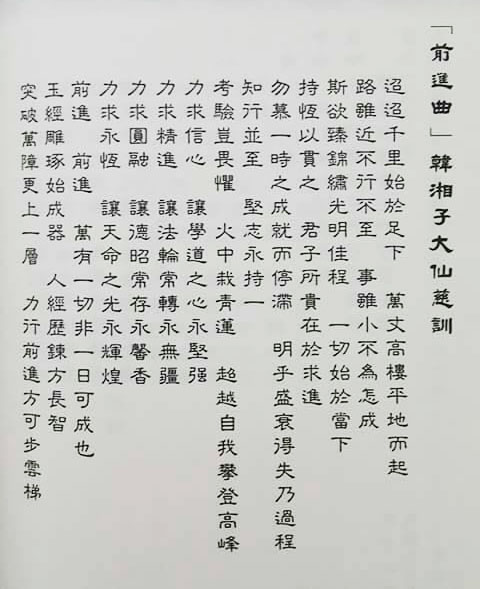 「前進曲」韓湘子大仙慈訓
迢迢千里始於足下　萬丈高樓平地而起
路雖近不行不至　事雖小不為怎成
斯欲臻錦繡光明佳程　一切始於當下
持恆以貫之　君子所貴在於求進
勿慕一時之成就而停滯　明乎盛衰得失乃過程
知行並至　堅志永持一
考驗豈畏懼　火中栽青蓮　超越自我攀登高峰
力求信心　讓學道之心永堅强
力求精進　讓法輪常轉永無疆
力求圓融　讓德昭常存永馨香
力求永恆　讓天命之光永輝煌
前進　前進　萬有一切非一日可成也
玉經雕琢始成器　人經歷鍊方長智
突破萬障更上一層　力行前進方可步雲梯